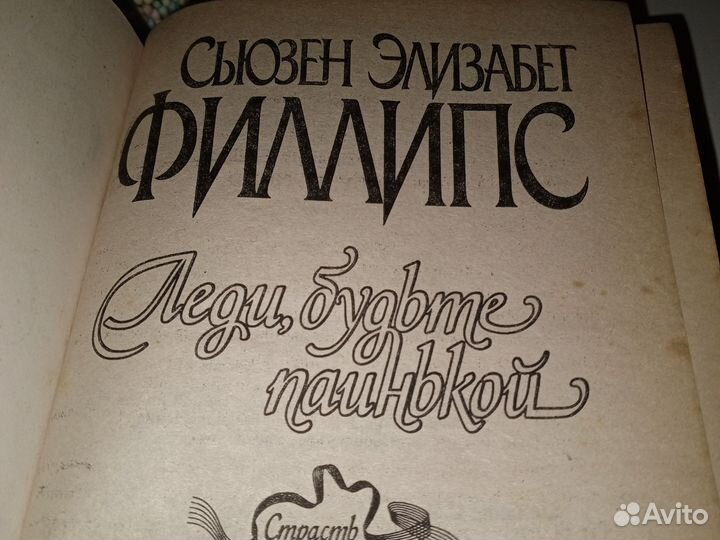 СЬЮЗЕН ЭЛИЗАБЕТ
ФИЛЛИПС
Леди, будьте
паинькой
Страсть
Avito